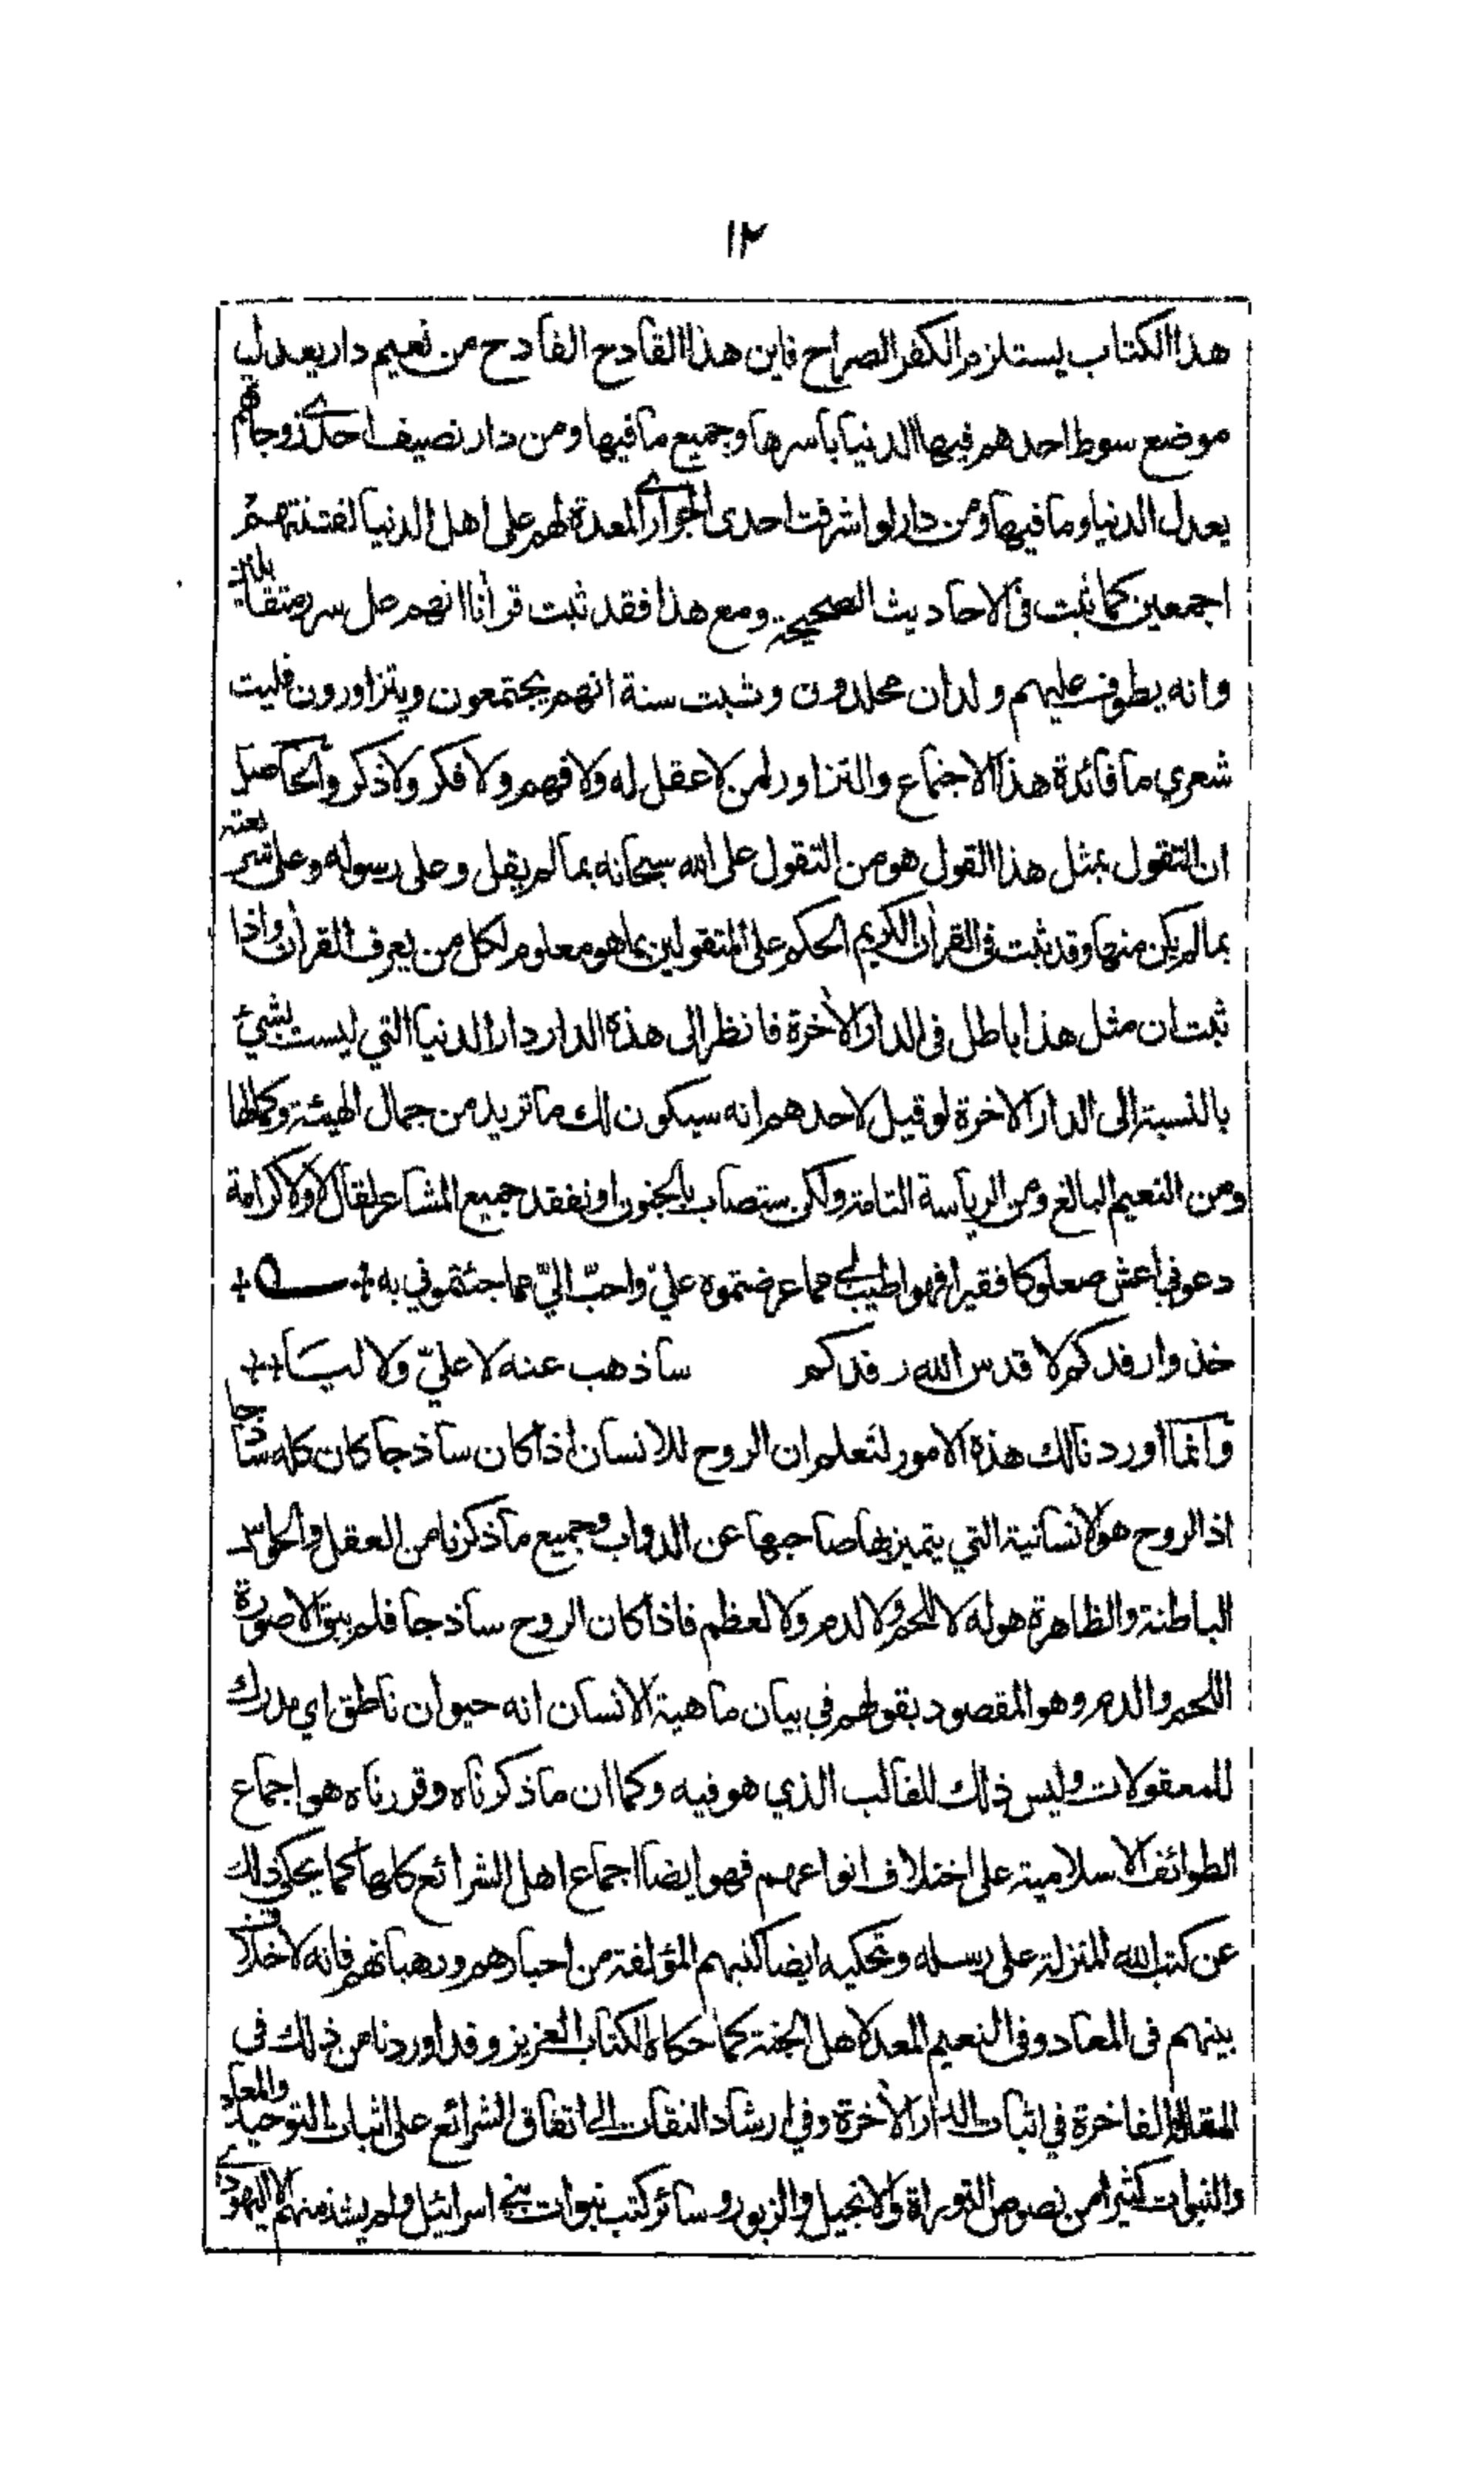 ١٢
هذا الكتاب يستلزم الكفر الصراح فاين هذا القادح الفادح من نعيم دار يعدل
موضع سوط احدهم فيها الدنيا باسرها وجميع ما فيها ومن دار نصيف احدى زوجاتهم
يعدل الدنيا وما فيها ومن دار لو اشرفت احدى الجواري المعدة لهم على اهل الدنيا لفتنتهم
اجمعين كما ثبت في الاحاديث الصحيحة ومع هذا فقد ثبت قرأنا انهم على سرر متقابلين
وانه يطوف عليهم ولدان مخلدون وثبت سنة انهم يجتمعون ويتزاورون فليت
شعري ما فائدة هذا الاجتماع والتزاور لمن لا عقل له ولا فهم ولا فكر ولا ذكر والحاصل
ان التقول بمثل هذا القول هو من التقول على الله سبحانه بما لم يقل وعلى رسوله وعلى شريعته
بما لم يكن منها وقد ثبت في القرأن الكريم الحكم على المتقولين بما هو معلوم لكل من يعرف القرأن واذا
ثبت ان مثل هذا باطل فى الدار الأخرة فانظر الى هذه الدار دار الدنيا التي ليست بشيئ
بالنسبة الى الدار الاخرة لو قيل لاحدهم انه سيكون لك ما تريد من جمال الهيئة وكمالها
ومن النعيم البالغ ومن الرياسة التامة ولكن ستصاب بالجنون او نفقد جميع المشاعر لقال لا ولا كرامة
دعوني اعش صعلوكا فقيرا فهو اطيب لي مما عرضتموه عليّ واحبّ اليّ مما جئتموني به
خذوا رفدكم لا قدس الله رفدكم ساذهب عنه لا عليّ ولا ليا
وانما اوردنا لك هذه الامور لتعلم ان الروح للانسان اذا كان ساذجا كان كله ساذجا
اذ الروح هو الانسانية التي يتميز بها صاحبها عن الدواب وجميع ما ذكرنا من العقل والحواس
الباطنة والظاهرة هو له لا للحم ولا لدم ولا لعظم فاذا كان الروح ساذجا فلم يبق الا صورة
اللحم والدم وهو المقصود بقولهم في بيان ماهية الانسان انه حيوان ناطق اي مدرك
للمعقولات وليس ذلك للقالب الذي هو فيه وكما ان ما ذكرناه وقررناه هو اجماع
الطوائف الاسلامية على اختلاف انواعهم فهو ايضا اجماع اهل الشرائع كلها كما يحكى ذلك
عن كتب الله المنزلة على رسله وتحكيه ايضا كتبهم المؤلفة من احبارهم ورهبانهم فانه لا خلاف
بينهم فى المعاد وفى النعيم المعد لاهل الجنة كما حكاه الكتاب العزيز وقد اوردنا من ذلك فى
المقالة الفاخرة في اثبات الدار الأخرة وفي ارشاد الثقات الى اتفاق الشرائع على اثبات التوحيد والمعاد
والنبوات كثيرا من نصوص التوراة والانجيل والزبور وسائر كتب نبوات بني اسرائيل ولم يشذ منهم الا اليهودي